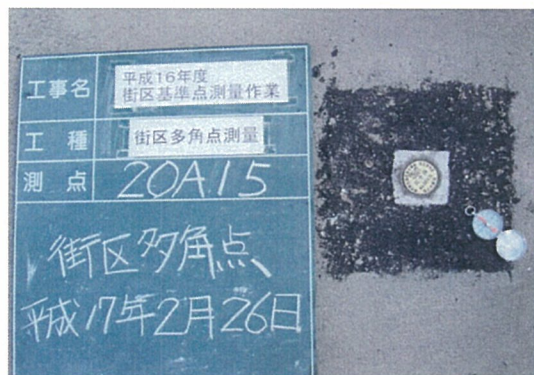 工事名
平成16年度
街区基準点測量作業
工種
街区多角点測量
測点
20A15
街区多角点
平成17年2月26日